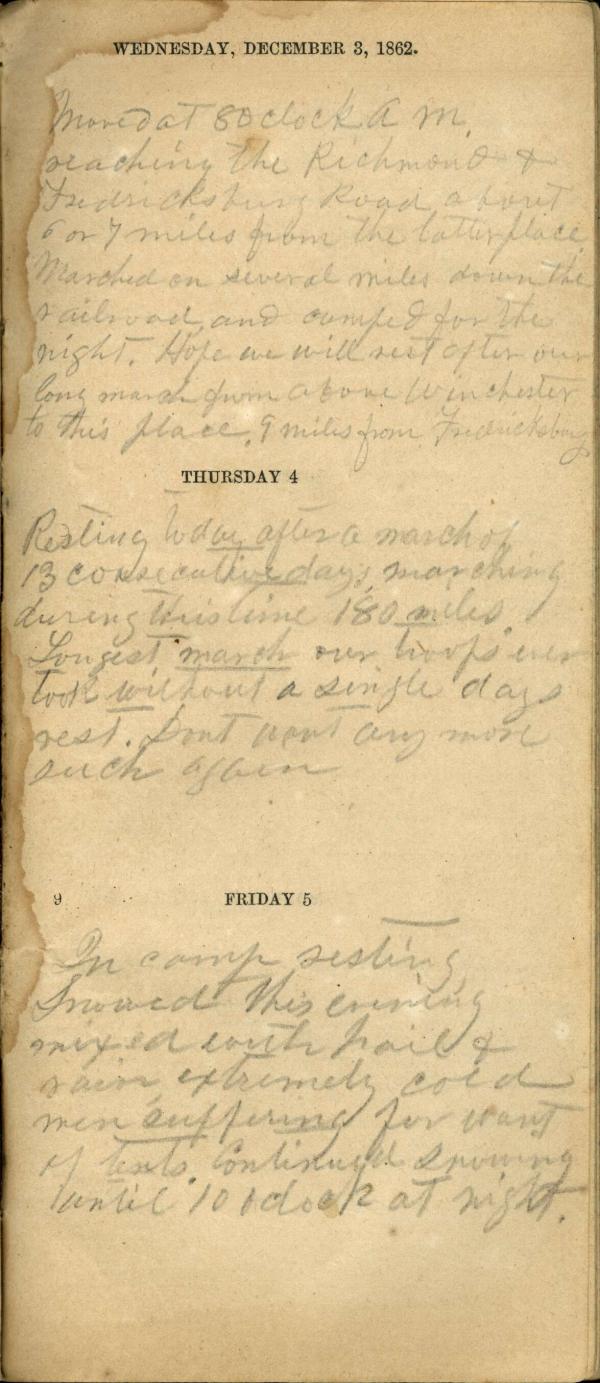 WEDNESDAY, DECEMBER 3, 1862.
Moved at 8 O clock A M.
reaching the Richmond &
Fredricksburg Road about
6 or 7 miles from the latter place.
Marched on several miles down the
railroad and camped for the
night. Hope we will rest after our
long march from above Winchester
to this place, 9 miles from Fredricksburg
THURSDAY 4
Resting today after a march of
13 consecutive days, marching
during this time 180 miles.
Longest march our troops ever
took without a single days
rest. Dont want any more
such again
9 FRIDAY 5
In camp resting
Snowed this evening
mixed with hail &
rain, extremely cold
men suffering for want
of tents. Continued snowing
until 10 oclock at night.